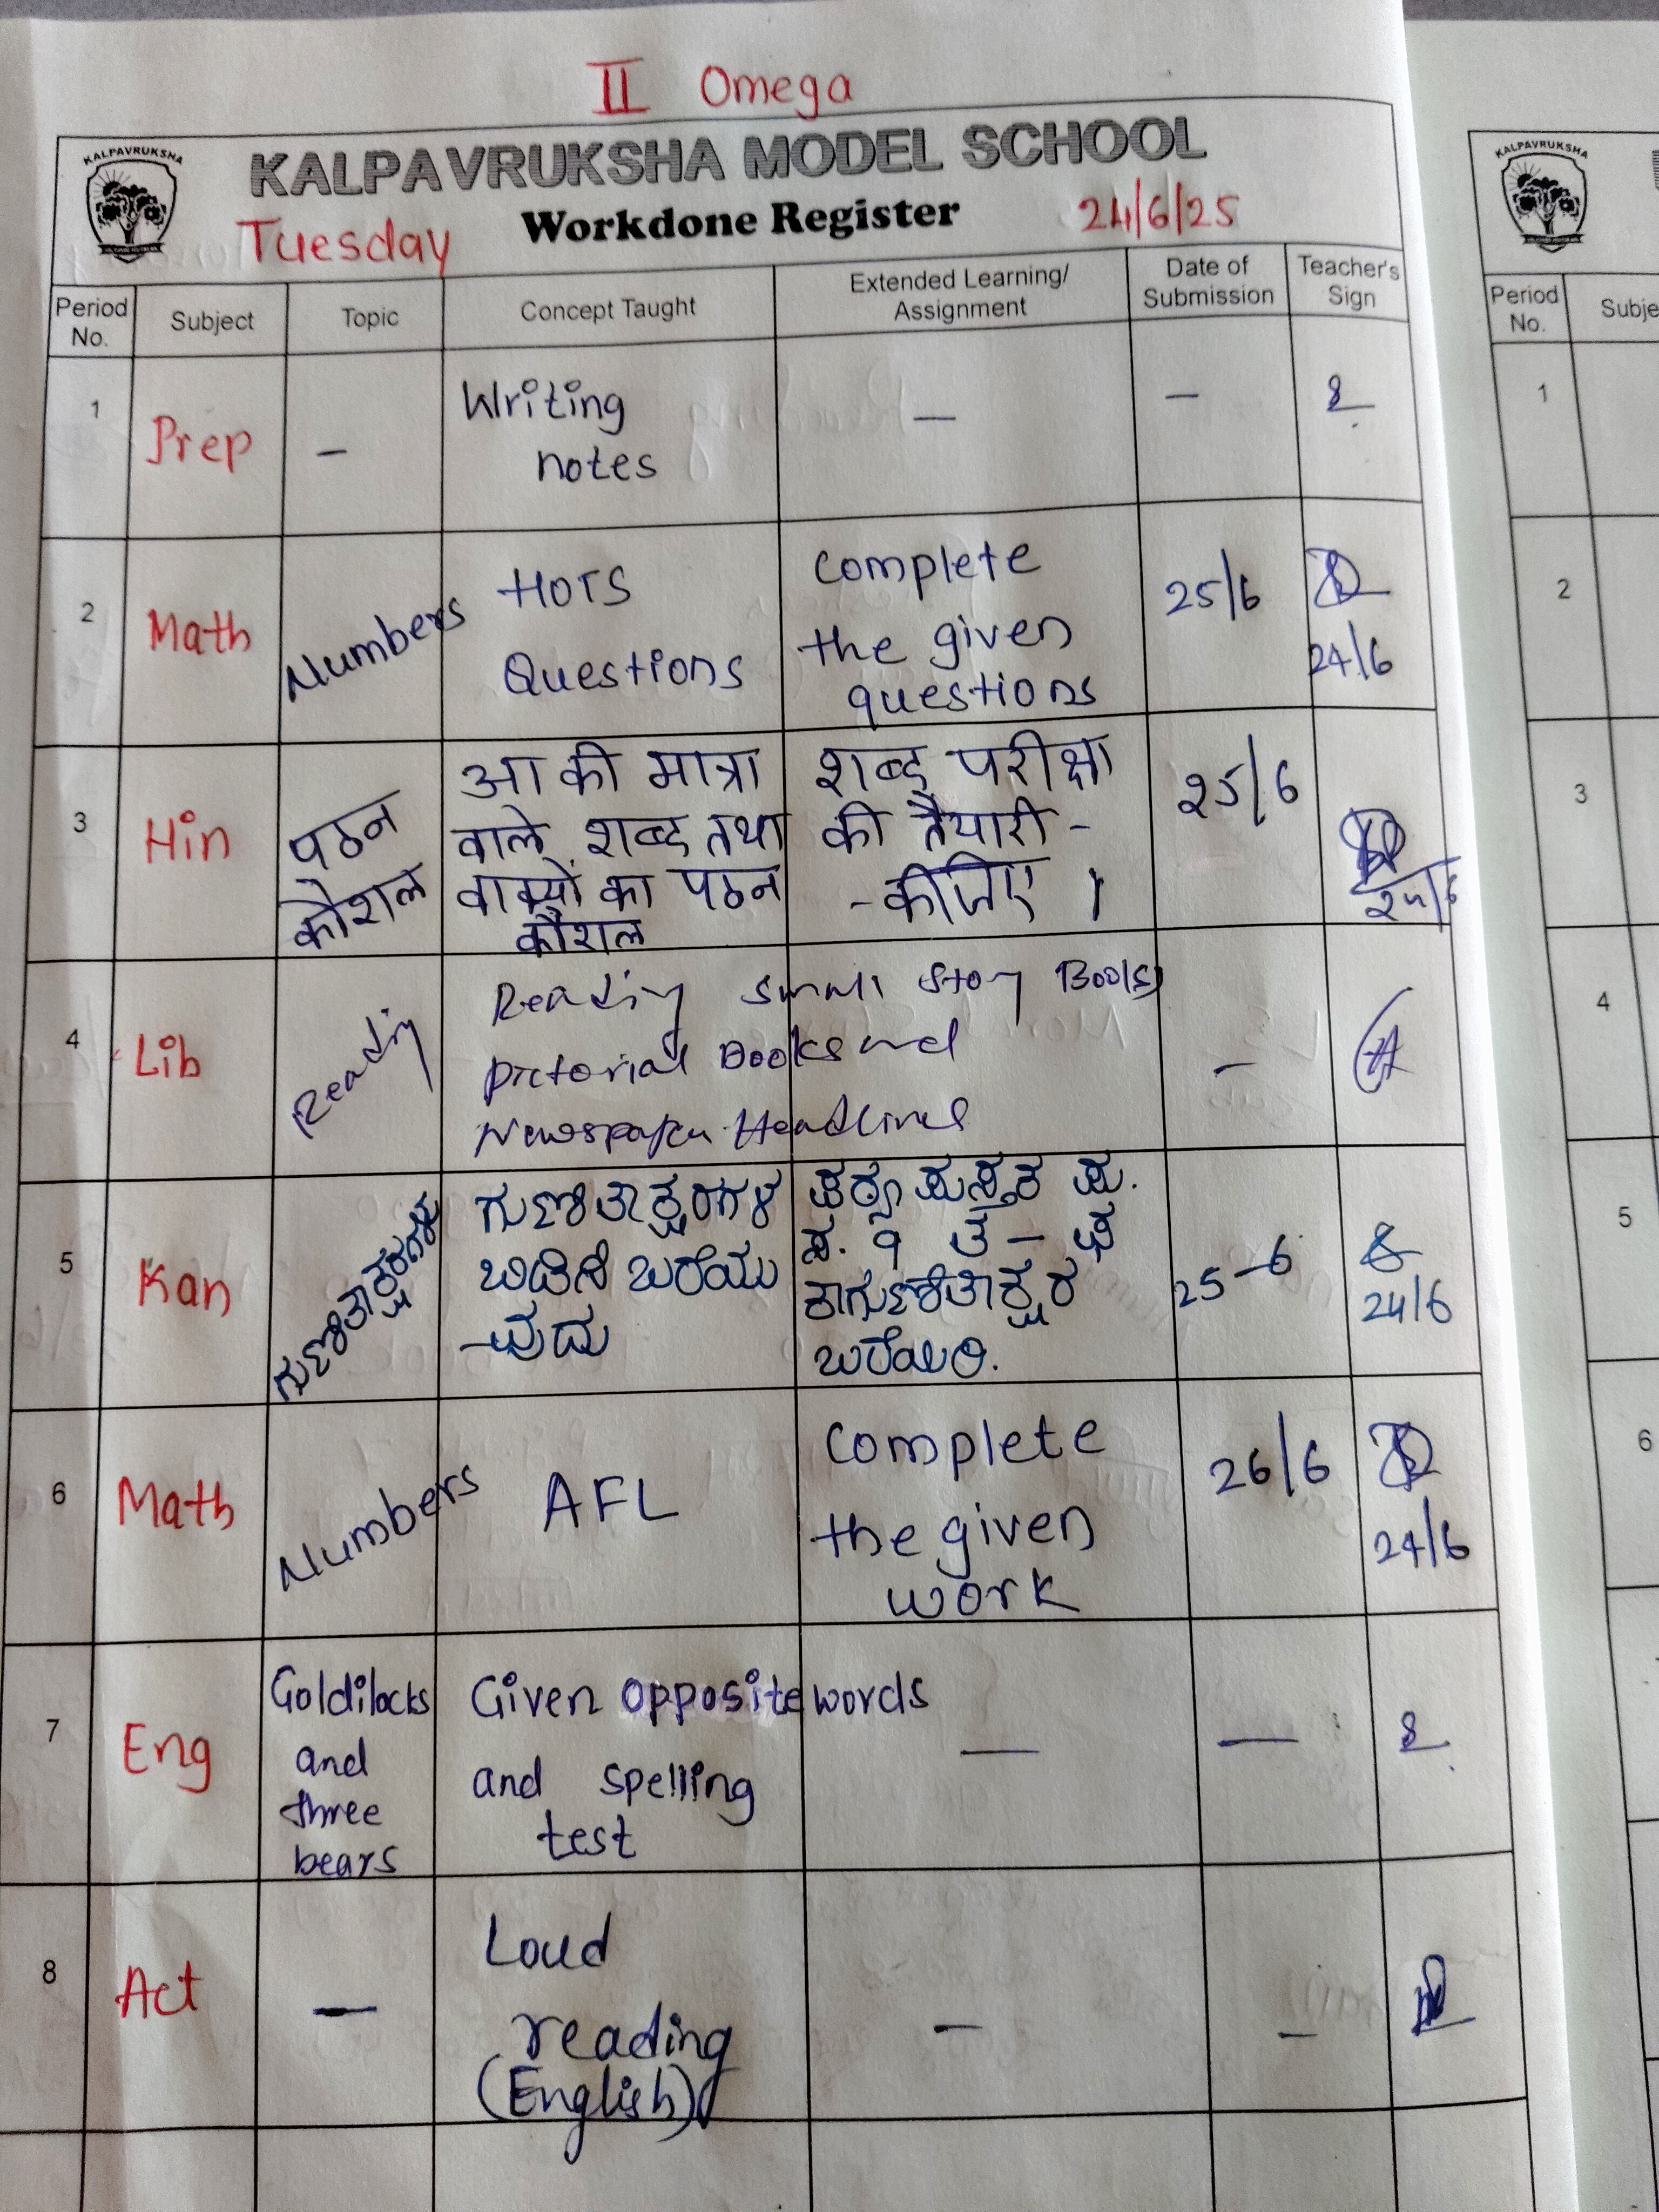 II Omega
KALPAVRUKSHA
KALPAVRUKSHA MODEL SCHOOL
Tuesday Workdone Register 24/6/25
Period No. Subject Topic Concept Taught Extended Learning/ Assignment Date of Submission Teacher's Sign
1 Prep – Writing notes – –
2 Math Numbers HOTS Questions Complete the given questions 25/6 24/6
3 Hin पठन कौशल आ की मात्रा वाले शब्द तथा वाक्यों का पठन कौशल शब्द परीक्षा की तैयारी - - कीजिए । 25/6 24/6
4 Lib Reading Reading small Story Books Pictorial Books and Newspaper Headlines –
5 Kan ಗುಣಿತಾಕ್ಷರಗಳು ಗುಣಿತಾಕ್ಷರಗಳ ಬಿಡಿಸಿ ಬರೆಯು -ವುದು ಪುಸ್ತಕ ಪು. ಬರೆಯಿರಿ. 25-6 24/6
6 Math Numbers AFL Complete the given work 26/6 24/6
7 Eng Goldilocks and three bears Given opposite words and spelling test – –
8 Act – Loud reading (English) – –
KALPAVRUKSHA
Period No. Subje
1
2
3
4
5
6